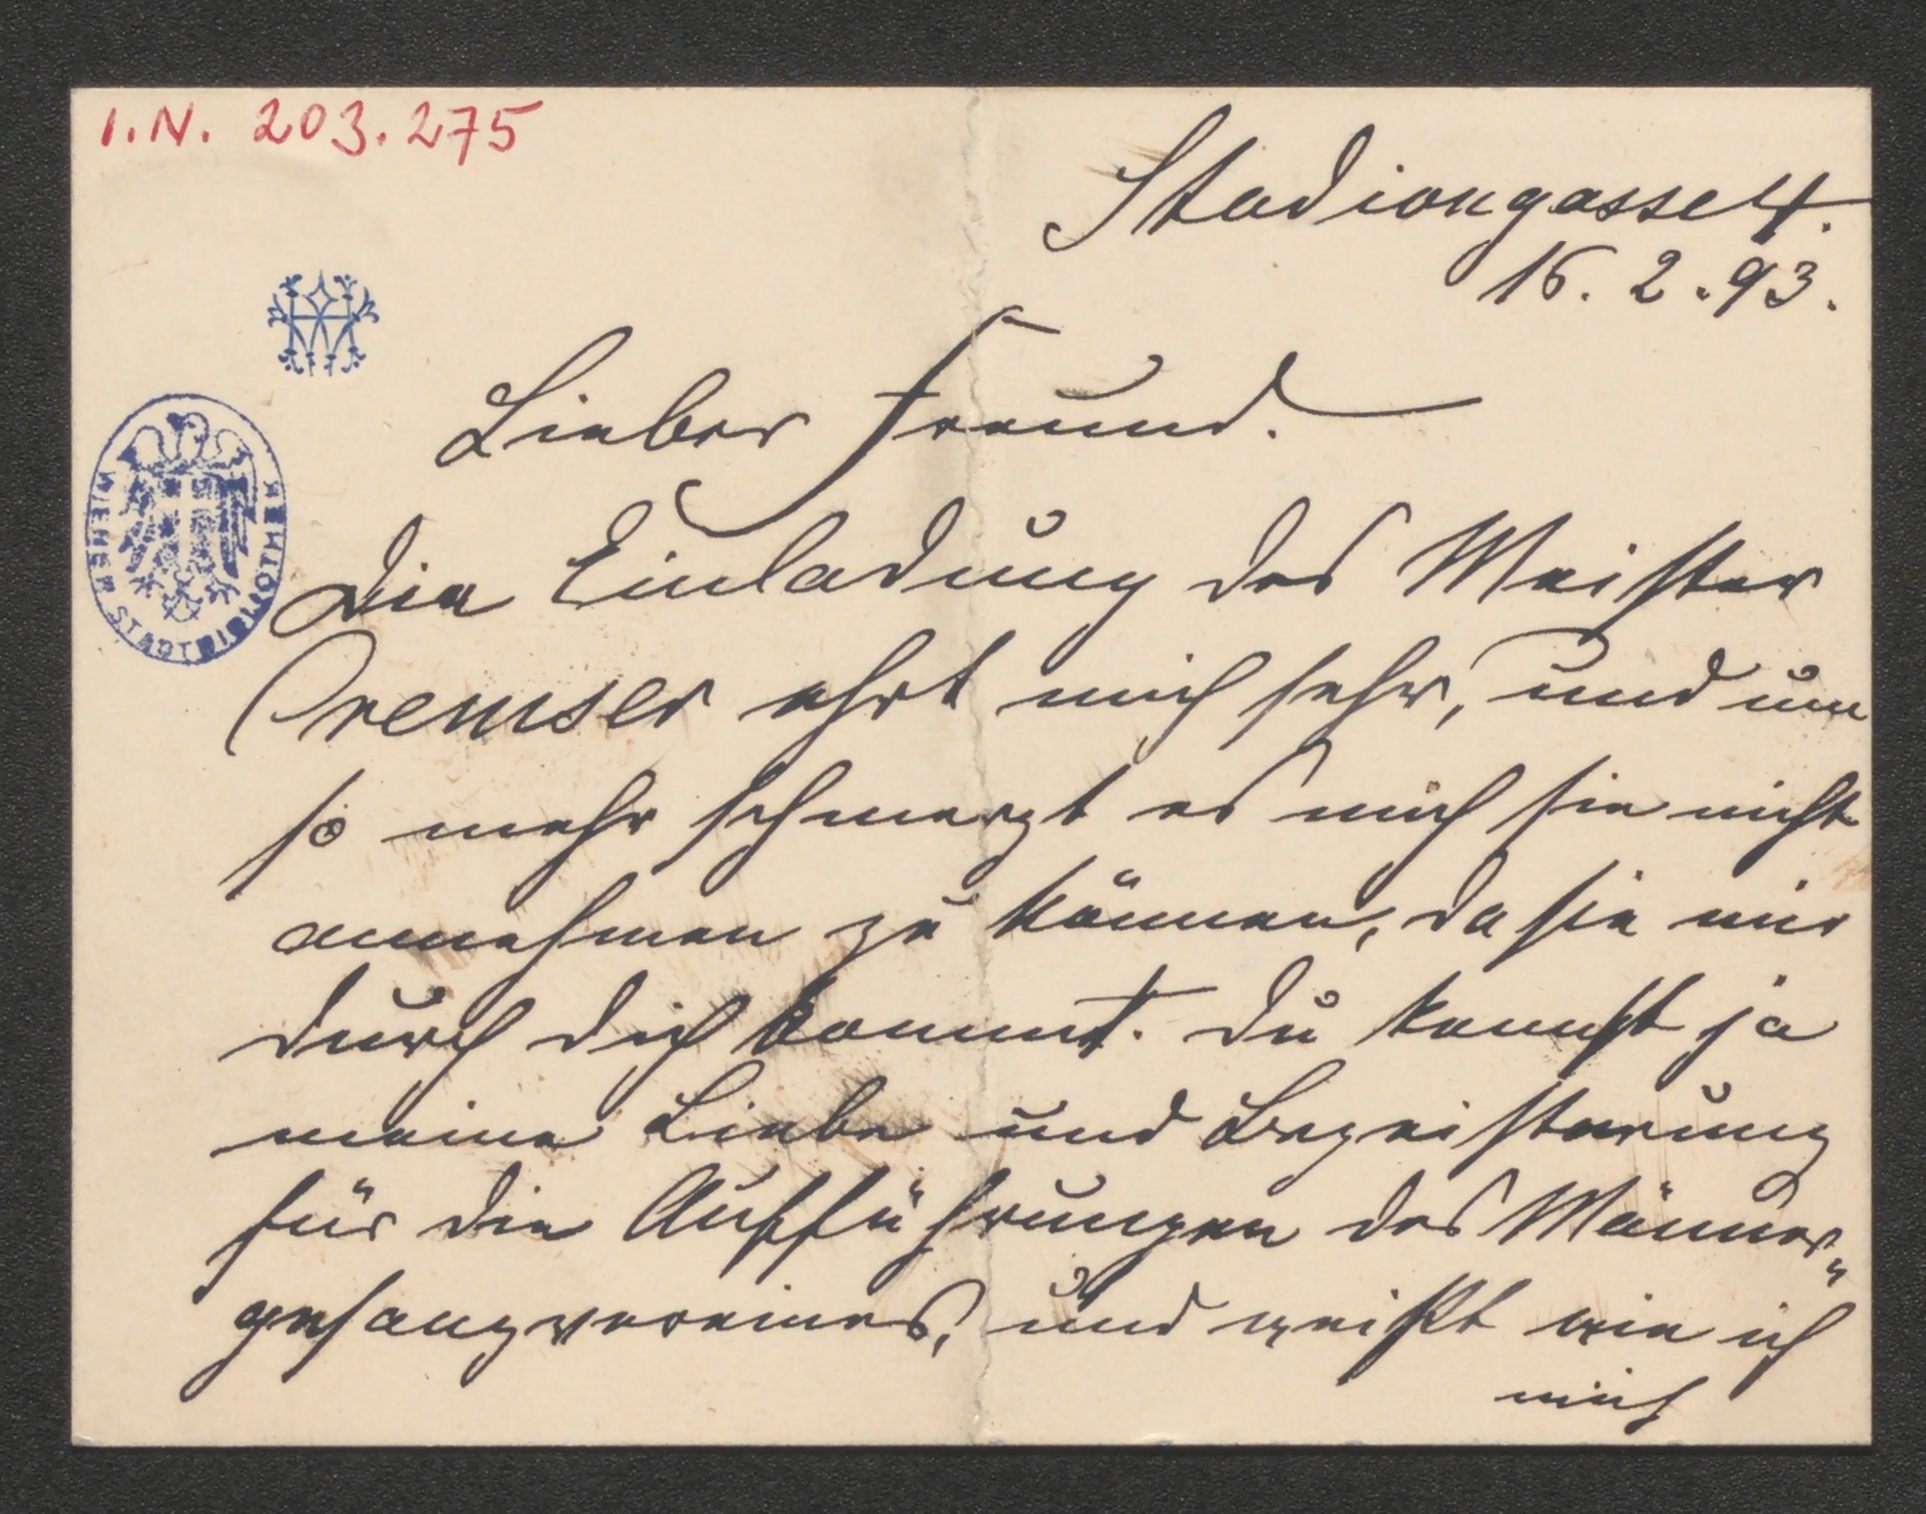 I.N. 203.275
Stadiongasse 4.
16. 2. 93.
Lieber Freund.
WIENER STADTBIBLIOTHEK
Die Einladung des Meister
Cremser ehrt mich sehr, und um
so mehr schmerzt es mich sie nicht
annehmen zu können, da sie mir
durch dich kommt. Du kennst ja
meine Liebe und Begeisterung
für die Aufführungen des Männer„
gesangvereines, und weißt wie ich
mich